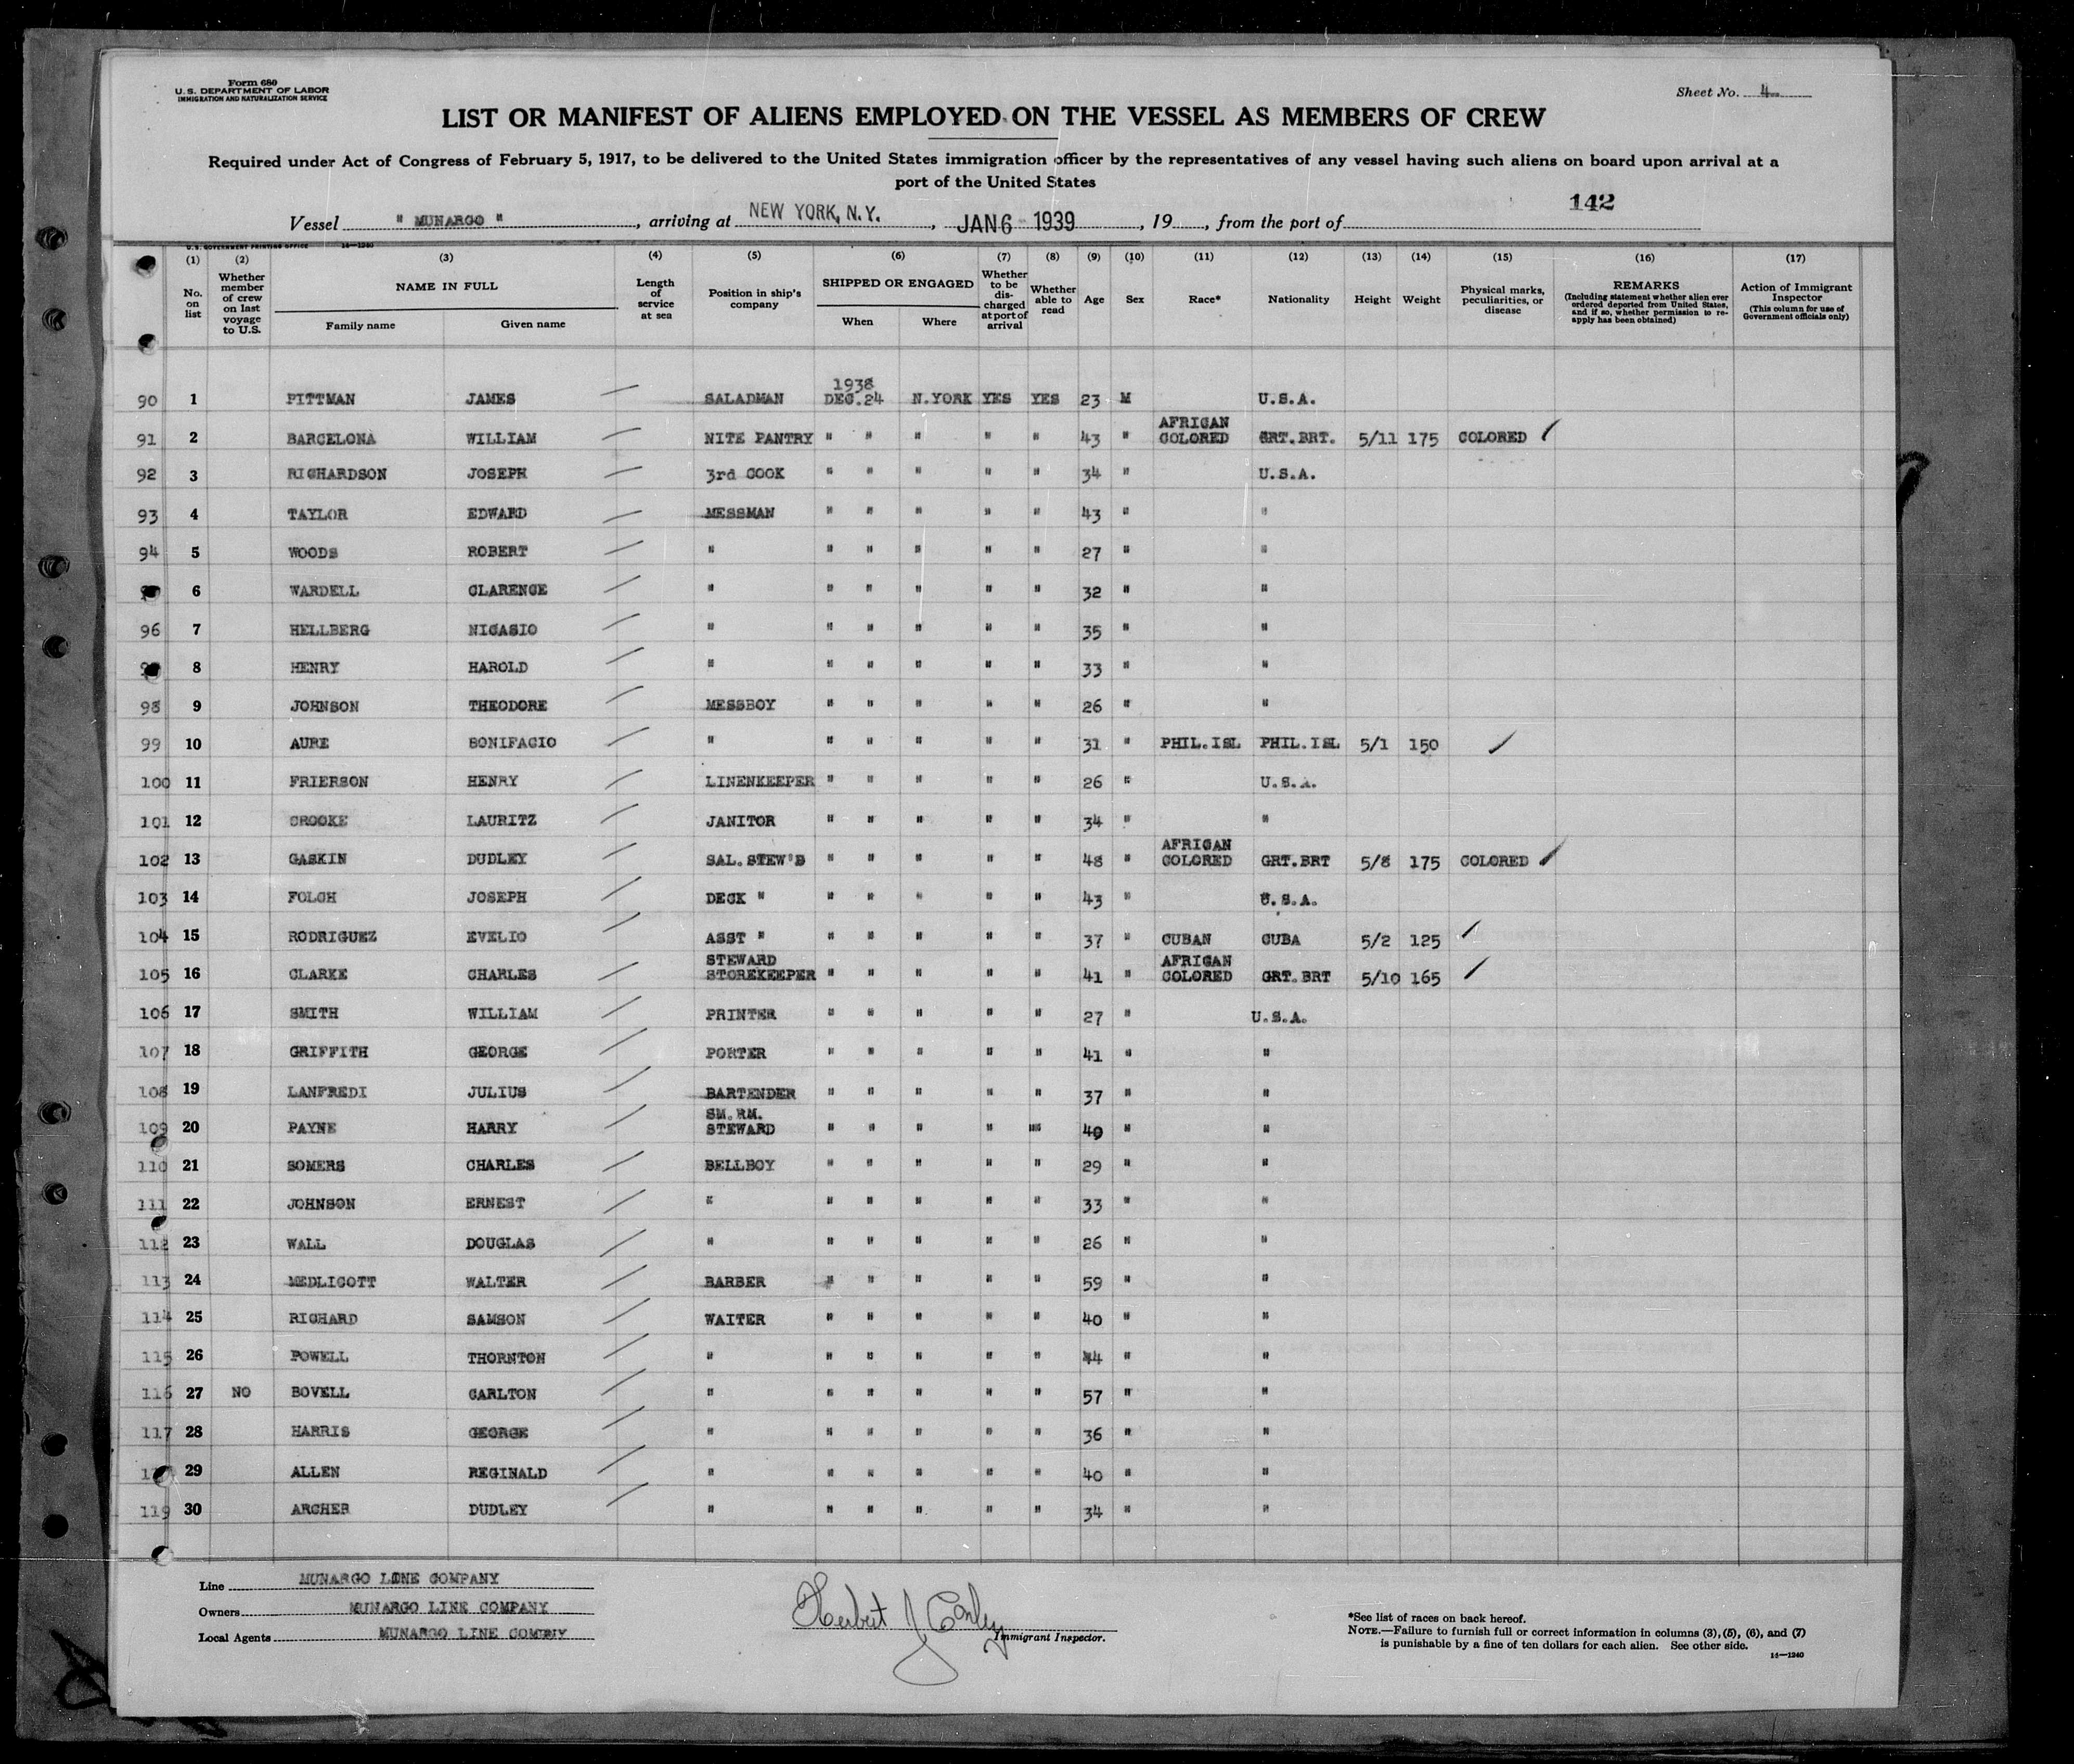 Form 680
U. S. DEPARTMENT OF LABOR
IMMIGRATION AND NATURALIZATION SERVICE
Sheet No. 4
LIST OR MANIFEST OF ALIENS EMPLOYED ON THE VESSEL AS MEMBERS OF CREW
Required under Act of Congress of February 5, 1917, to be delivered to the United States immigration officer by the representatives of any vessel having such aliens on board upon arrival at a
port of the United States
142
Vessel " MUNARGO ", arriving at NEW YORK, N.Y., JAN 6 1939, 19, from the port of
U.S. GOVERNMENT PRINTING OFFICE 14—1240
(1) No. on list
(2) Whether member of crew on last voyage to U.S.
(3) NAME IN FULL Family name Given name
(4) Length of service at sea
(5) Position in ship's company
(6) SHIPPED OR ENGAGED When Where
(7) Whether to be discharged at port of arrival
(8) Whether able to read
(9) Age
(10) Sex
(11) Race*
(12) Nationality
(13) Height
(14) Weight
(15) Physical marks, peculiarities, or disease
(16) REMARKS (Including statement whether alien ever ordered deported from United States, and if so, whether permission to reapply has been obtained)
(17) Action of Immigrant Inspector (This column for use of Government officials only)
1938
90 1 PITTMAN JAMES SALADMAN DEC.24 N.YORK YES YES 23 M U.S.A.
91 2 BARCELONA WILLIAM NITE PANTRY " " " " " 43 " AFRICAN COLORED GRT.BRT. 5/11 175 COLORED
92 3 RICHARDSON JOSEPH 3rd COOK " " " " " 34 " U.S.A.
93 4 TAYLOR EDWARD MESSMAN " " " " " 43 " "
94 5 WOODS ROBERT " " " " " " 27 " "
6 WARDELL CLARENCE " " " " " " 32 " "
96 7 HELLBERG NICASIO " " " " " " 35 " "
8 HENRY HAROLD " " " " " " 33 " "
98 9 JOHNSON THEODORE MESSBOY " " " " " 26 " "
99 10 AURE BONIFACIO " " " " " " 31 " PHIL.ISL PHIL.ISL 5/1 150
100 11 FRIERSON HENRY LINENKEEPER " " " " " 26 " U.S.A.
101 12 CROOKE LAURITZ JANITOR " " " " " 34 " "
102 13 GASKIN DUDLEY SAL.STEW'D " " " " " 48 " AFRICAN COLORED GRT.BRT 5/8 175 COLORED
103 14 FOLCH JOSEPH DECK " " " " " " 43 " U.S.A.
104 15 RODRIGUEZ EVELIO ASST " " " " " " 37 " CUBAN CUBA 5/2 125
105 16 CLARKE CHARLES STEWARD STOREKEEPER " " " " " 41 " AFRICAN COLORED GRT.BRT 5/10 165
106 17 SMITH WILLIAM PRINTER " " " " " 27 " U.S.A.
107 18 GRIFFITH GEORGE PORTER " " " " " 41 " "
108 19 LANFREDI JULIUS BARTENDER " " " " " 37 " "
109 20 PAYNE HARRY SM.RM. STEWARD " " " " " 40 " "
110 21 SOMERS CHARLES BELLBOY " " " " " 29 " "
111 22 JOHNSON ERNEST " " " " " " 33 " "
112 23 WALL DOUGLAS " " " " " " 26 " "
113 24 MEDLICOTT WALTER BARBER " " " " " 59 " "
114 25 RICHARD SAMSON WAITER " " " " " 40 " "
115 26 POWELL THORNTON " " " " " " 44 " "
116 27 NO BOVELL CARLTON " " " " " " 57 " "
117 28 HARRIS GEORGE " " " " " " 36 " "
29 ALLEN REGINALD " " " " " " 40 " "
119 30 ARCHER DUDLEY " " " " " " 34 " "
Line MUNARGO LINE COMPANY
Owners MUNARGO LINE COMPANY
Local Agents MUNARGO LINE COMPNY
Herbert J Conley
Immigrant Inspector.
*See list of races on back hereof.
NOTE.—Failure to furnish full or correct information in columns (3), (5), (6), and (7)
is punishable by a fine of ten dollars for each alien. See other side.
14—1240